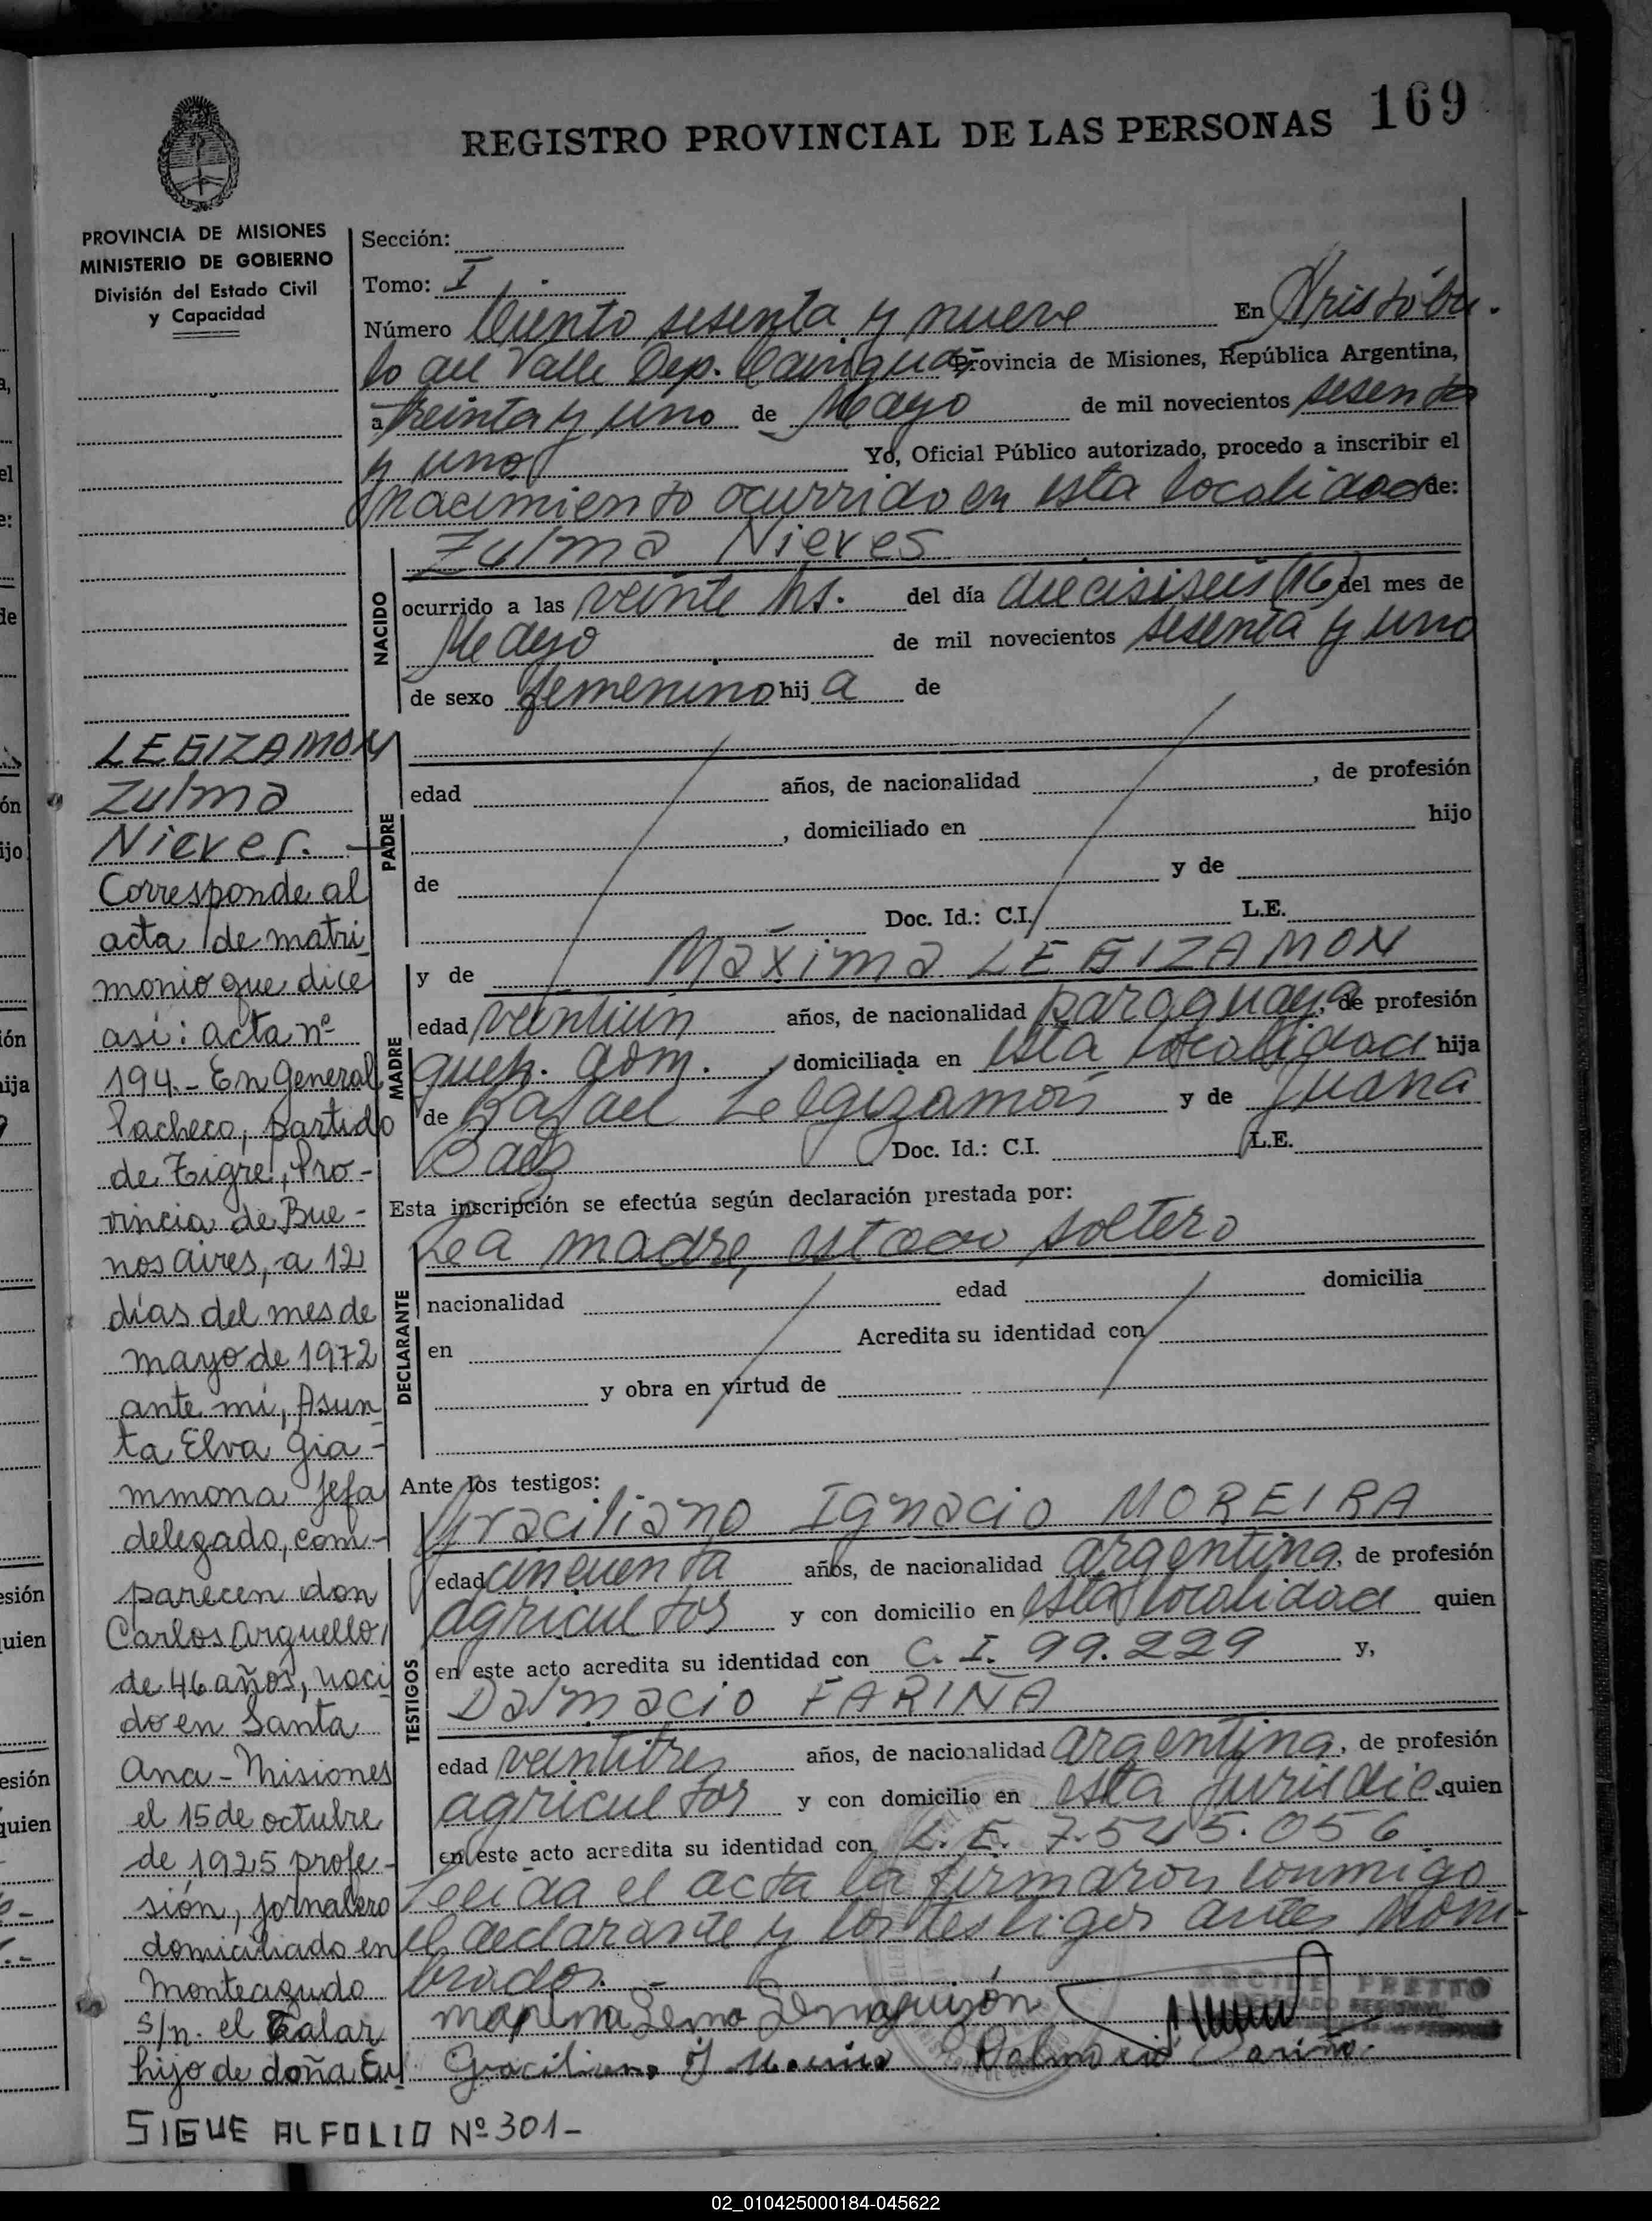 169
REGISTRO PROVINCIAL DE LAS PERSONAS
PROVINCIA DE MISIONES
MINISTERIO DE GOBIERNO
División del Estado Civil
y Capacidad
Sección:
Tomo: I
Número Ciento sesenta y nueve En Aristóbu-
lo del Valle Dep. Cainguás Provincia de Misiones, República Argentina,
a treinta y uno de Mayo de mil novecientos sesenta
y uno Yo, Oficial Público autorizado, procedo a inscribir el
nacimiento ocurrido en esta localidad de:
Zulma Nieves
NACIDO
ocurrido a las veinte hs. del día dieciseis (16) del mes de
Mayo de mil novecientos sesenta y uno
de sexo femenino hij a de
PADRE
edad años, de nacionalidad , de profesión
, domiciliado en hijo
de y de
Doc. Id.: C.I. L.E.
MADRE
y de Máxima LEGIZAMON
edad veintiun años, de nacionalidad paraguaya, de profesión
queh. dom. , domiciliada en esta localidad hija
de Rafael Leegizamón y de Juana
Baez Doc. Id.: C.I. L.E.
Esta inscripción se efectúa según declaración prestada por:
DECLARANTE
La madre, estado soltero
nacionalidad edad domicilia
en Acredita su identidad con
y obra en virtud de
Ante los testigos:
TESTIGOS
Graciliano Ignacio MOREIRA
edad cincuenta años, de nacionalidad argentina, de profesión
agricultor y con domicilio en esta localidad quien
en este acto acredita su identidad con C. I. 99.229 y,
Dalmacio FARIÑA
edad veintitres años, de nacionalidad argentina, de profesión
agricultor y con domicilio en esta jurisdic. quien
en este acto acredita su identidad con L. E. 7.545.056
Leida el acta la firmaron conmigo
el declarante y los testigos antes nom-
brados.-
PRETTO
LEGIZAMON
Zulma
Nieves.
Corresponde al
acta de matri
monio que dice
así: acta nº
194.- En General
Pacheco, partido
de Tigre, Pro-
vincia de Bue-
nos aires, a 12
días del mes de
mayo de 1972
ante mí, Asun
ta Elva Gia-
mmona Jefa
delegado, com-
parecen don
Carlos Arguello,
de 46 años, naci
do en Santa
Ana - Misiones
el 15 de octubre
de 1925 profe-
sión, jornalero
domiciliado en
Monteagudo
s/n. el Talar
hijo de doña Eu
SIGUE AL FOLIO Nº 301-
02_010425000184-045622